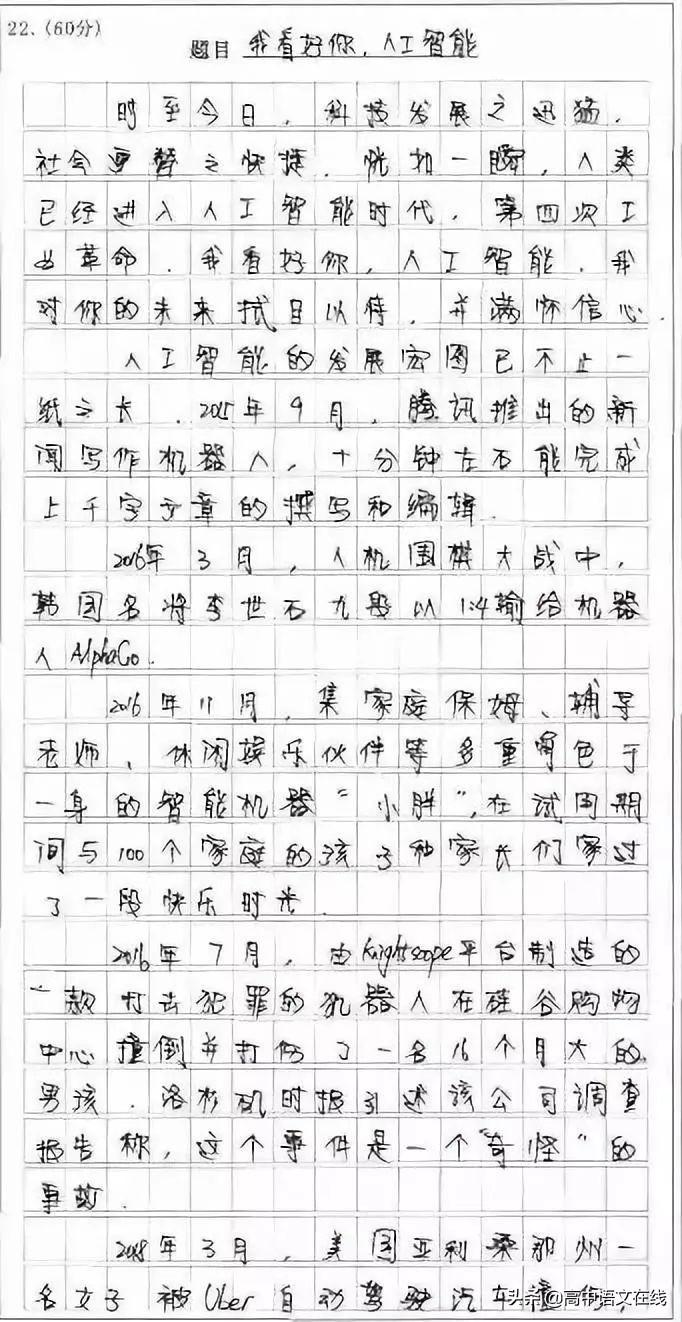 22.(60分)
题目 我看好你，人工智能
时至今日，科技发展之迅猛，
社会更替之快捷，恍如一瞬，人类
已经进入人工智能时代，第四次工
业革命．我看好你，人工智能．我
对你的未来拭目以待，并满怀信心．
人工智能的发展宏图已不止一
纸之长．2015年9月，腾讯推出的新
闻写作机器人，十分钟左右能完成
上千字文章的撰写和编辑．
2016年3月，人机围棋大战中，
韩国名将李世石九段以1:4输给机器
人AlphaGo．
2016年11月，集家庭保姆、辅导
老师、休闲娱乐伙伴等多重角色于
一身的智能机器"小胖"，在试用期
间与100个家庭的孩子和家长们家过
了一段快乐时光．
2016年7月，由Knightscope平台制造的
一款打击犯罪的机器人在硅谷购物
中心撞倒并打伤了一名16个月大的
男孩．洛杉矶时报引述该公司调查
报告称，这个事件是一个"奇怪"的
事故．
2018年3月，美国亚利桑那州一
名女子被Uber自动驾驶汽车撞伤，
头条@高中语文在线